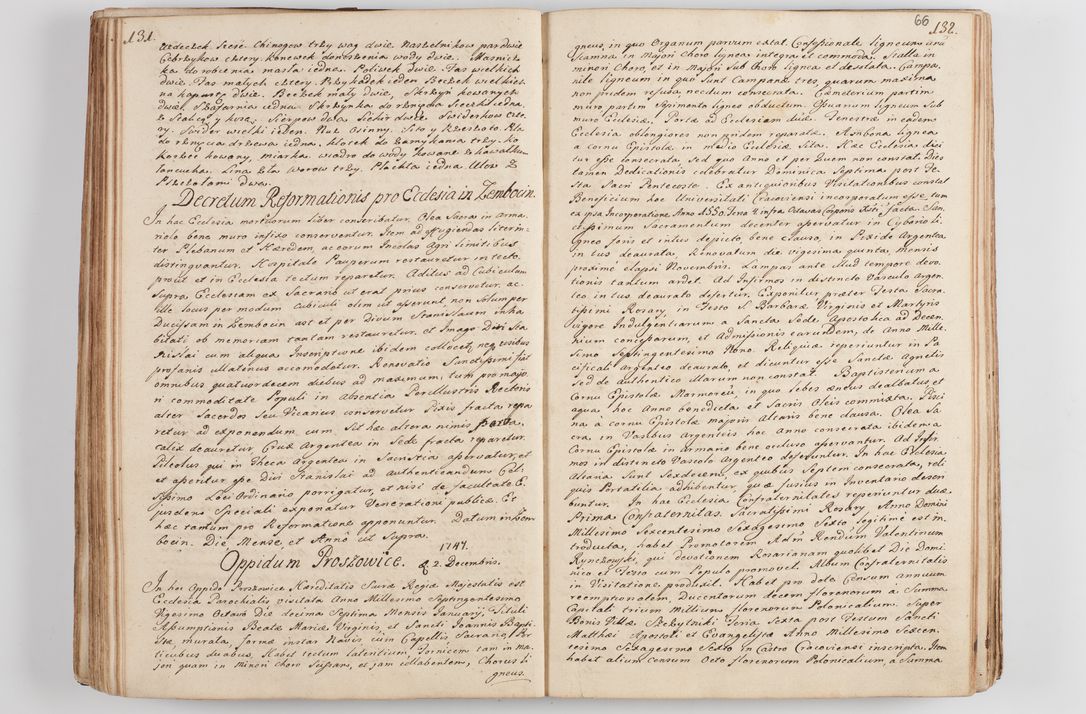 131.
Grdeczek Szesć Chinogow trzy wag dwie Naszelnikow par dwie
Cebrzykow cztery. Konewek do noszenia wody dwie. Masnicz-
ka do robienia masła iedna. Dzinek dwie. Fas wielkich
dwie. Fas małych cztery. Przykadek ieden Beczek wielkich
na kapustę dwie. Beczek mały dwie, Skrzyń kowanych
dwie. Szafarnia iedna. Skrzynka do rznięcia sieczki iedna
z Stalicą y kosą. Sierpow dwa. Siekir dwie. Swiderkow czte-
ry. Swider wielki ieden. Nuz Osinny. Sito y Rzeszoto. Piła
do rznięcia drzewa iedna. Klotek do zamykania trzy. Ko
korzec kowany, miarka, wiadro do wody kowane z kawałkiem
łancucha. Lina zła Worow trzy. Płachta iedna Ulow z
Pszczołami dwa.
Decretum Reformationis pro Ecclesia in Zembocin.
In hac Ecclesia mortuorum Liber conscribatur. Olea Sacra in Arma-
riolo bene muro infixo conserventur. Item ad effugiendas lites in-
ter Plebanum et Hæredem, ac eorum Incolas Agri limitibus
distinguantur. Hospitale Pauperum restauretur in tecto
prout et in Ecclesia tectum reparetur. Aditus ad Cubiculum
supra Ecclesiam ex Sacrario ut erat prius conservetur, ac
ille locus per modum cubiculi olim ut asserunt, non solum per
Ducissam in Zembocin ast et per Divum Stanislaum inha
bitati ob memoriam tantam restauretur, et Imago Divi Sta
nislai cum aliqua Inscriptione ibidem collocet, neq. usibus
profanis ullatenus accomodetur. Renovatio Sanctissimi fiat
omnibus quatuordecem diebus ad maximum, tum pro majo-
ri commoditate Populi in Absentia Perillustris Rectoris
alter Sacerdos Seu Vicarius conservetur Pixis fracta repa
retur ad exponendum cum sit hæc altera nimis parva,
calix deauretur, Crux Argentea in Sede fracta reparetur.
Pileolus qui in Theca Argentea in Sacristia asservatur, et
et asseritur esse Divi Stanislai ad authenticandum Cel-
sissimo Loci Ordinario porrigatur, et nisi de facultate E-
jusdem Speciali exponatur Venerationi publicæ. Et
hæc tantum pro Reformatione opponuntur. Datum in Zem
bocin. Die Mense, et Anno ut Supra.
1747.
Oppidum Proszowice. 2. Decembris.
In hoc Oppido Proszowice Hæreditatis Sacræ Regiæ Majestatis est
Ecclesia Parochialis visitata Anno Millesimo Septingentesimo
Vigesimo Octavo Die decima Septima Mensis January, Tituli
Assumptionis Beatæ Mariæ Virginis et Sancti Joannis Bapti
stæ murata, formæ instar Navis cum Capellis Sacrario, Por
ticubus duabus. Habet tectum latentium, Fornicem tam in Ma-
jori quam in Minori choro Supram, et jam collabentem, Chorus li
gneus.
66
132.
gneus, in quo Organum parvum extat. Confessionale ligneum unū
Scamna in Majori Choro lignea integra et commoda, Stalla in
minori Choro, et in Majori Sub Choro lignea et desolata. Campa-
nile ligneum in quo sunt Campanæ tres, quarum maxima
non pridem refusa, necdum consecrata. Cæmeterium partim
muro partim Sepimento ligneo obductum. Ossuarium ligneum Sub
muro Ecclesiæ. Portæ ad Ecclesiam duæ. Fenestræ in eadem
Ecclesia oblongiores non pridem reparatæ. Ambona lignea
a cornu Epistolæ in medio Ecclesiæ Sita. Hæc Ecclesia dici
tur esse consecrata, sed quo Anno et per Quem non constat. Dies
tamen Dedicationis celebratur Dominica Septima post Fe-
sta Sacri Pentecoste. Ex antiquioribus Visitationibus constat
Beneficium hoc Universitati Cracoviensi incorporatum esse, cum
ea ipsa Incorporatione Anno 1550. Feria 4. infra Octavas Corporis Xsti facta. San-
ctissimum Sacramentum decenter asservatur in Cyborio li-
gneo foris et intus depicto, bene clauso, in Pixide Argentea
in tus deaurata. Renovatum die vigesima quinta mensis
proxime elapsi Novembris. Lampas ante illud tempore devo-
tionis tantum ardet. Ad Infirmos in distincto Vasculo Argen
teo intus deaurato defertur. Exponitur præter Festa Sacra-
tissimi Rosary, in Festo S. Barbaræ Virginis et Martyris
vigore Indulgentiarum a Sancta Sede Apostolica ad Decen-
nium concessarum, et Admissionis earundem, de Anno Mille-
simo Septingentesimo Nono. Reliquiæ reperiuntur in Pa
cificali Argenteo deaurato, et dicuntur esse Sanctæ Agnetis
sed de authentico illarum non constat. Baptisterium a
Cornu Epistolæ Marmoreū, in quo lebes æneus dealbatus et
aqua, hoc Anno benedicta et Sacris Oleis commixta. Pisci
na a cornu Epistolæ majoris Altaris bene clausa. Olea Sa-
cra, in Vasibus Argenteis hoc Anno consecrata ibidem a
Cornu Epistolæ in armario bene occluso asservantur. Ad Infir
mos in distincto Vasculo Argenteo deferuntur. In hac Ecclesia
Altaria Sunt Sexdecem, ex quibus Septem consecrata, reli
quis Portatilia adhibentur, quæ fusius in Inventario descri
buntur. In hac Ecclesia Confraternitates reperiuntur duæ.
Prima Confraternitas. Sacratissimi Rosary Anno Domini
Millesimo Sexcentesimo Sexagesimo Sexto legitime est in.
troducta, habet Promotorem Adm̄ Rendum Valentinum
Rynczowski, qui devotionem Rosarianam quolibet Die Domi
nico et Festo cum Populo promovet. Album Cofraternitatis
in Visitatione, produxit. Habet pro dote Censum annuum
reemptionalem, Ducentorum decem florenorum a Summa
Capitali trium Millium florenorum Polonicalium. Super
Bonis Villæ Stręgtniki Feria Sexta post Festum Sancti
Matthæi Apostoli et Evangelistæ Anno Millesimo Sexcen.
tesimo Sexagesimo Sexto in Castro Cracoviensi inscripta. Item
habet alium censum Octo florenorum Polonicalium, a Summa